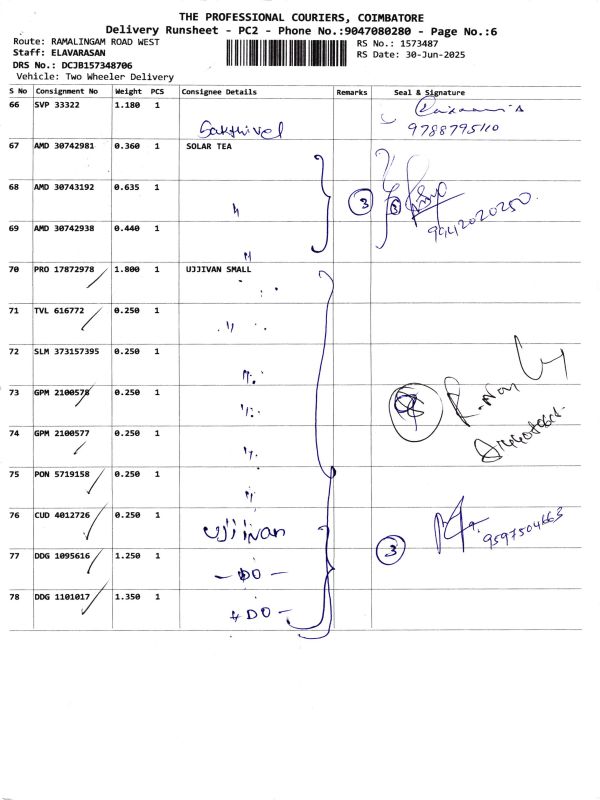 THE PROFESSIONAL COURIERS, COIMBATORE
Delivery Runsheet - PC2 - Phone No.:9047080280 - Page No.:6
Route: RAMALINGAM ROAD WEST
RS No.: 1573487
Staff: ELAVARASAN
RS Date: 30-Jun-2025
DRS No.: DCJB157348706
Vehicle: Two Wheeler Delivery
S No Consignment No Weight PCS Consignee Details Remarks Seal & Signature
66 SVP 33322 1.180 1 Sakthivel
9788795110
67 AMD 30742981 0.360 1 SOLAR TEA
68 AMD 30743192 0.635 1 〃 3 3
9942020250
69 AMD 30742938 0.440 1 〃
70 PRO 17872978 1.800 1 UJJIVAN SMALL
71 TVL 616772 0.250 1 〃
72 SLM 373157395 0.250 1 〃
73 GPM 2100578 0.250 1 〃
74 GPM 2100577 0.250 1 〃
75 PON 5719158 0.250 1 〃
76 CUD 4012726 0.250 1 Ujjivan
9597504663
77 DDG 1095616 1.250 1 - DO - 3
78 DDG 1101017 1.350 1 - DO -